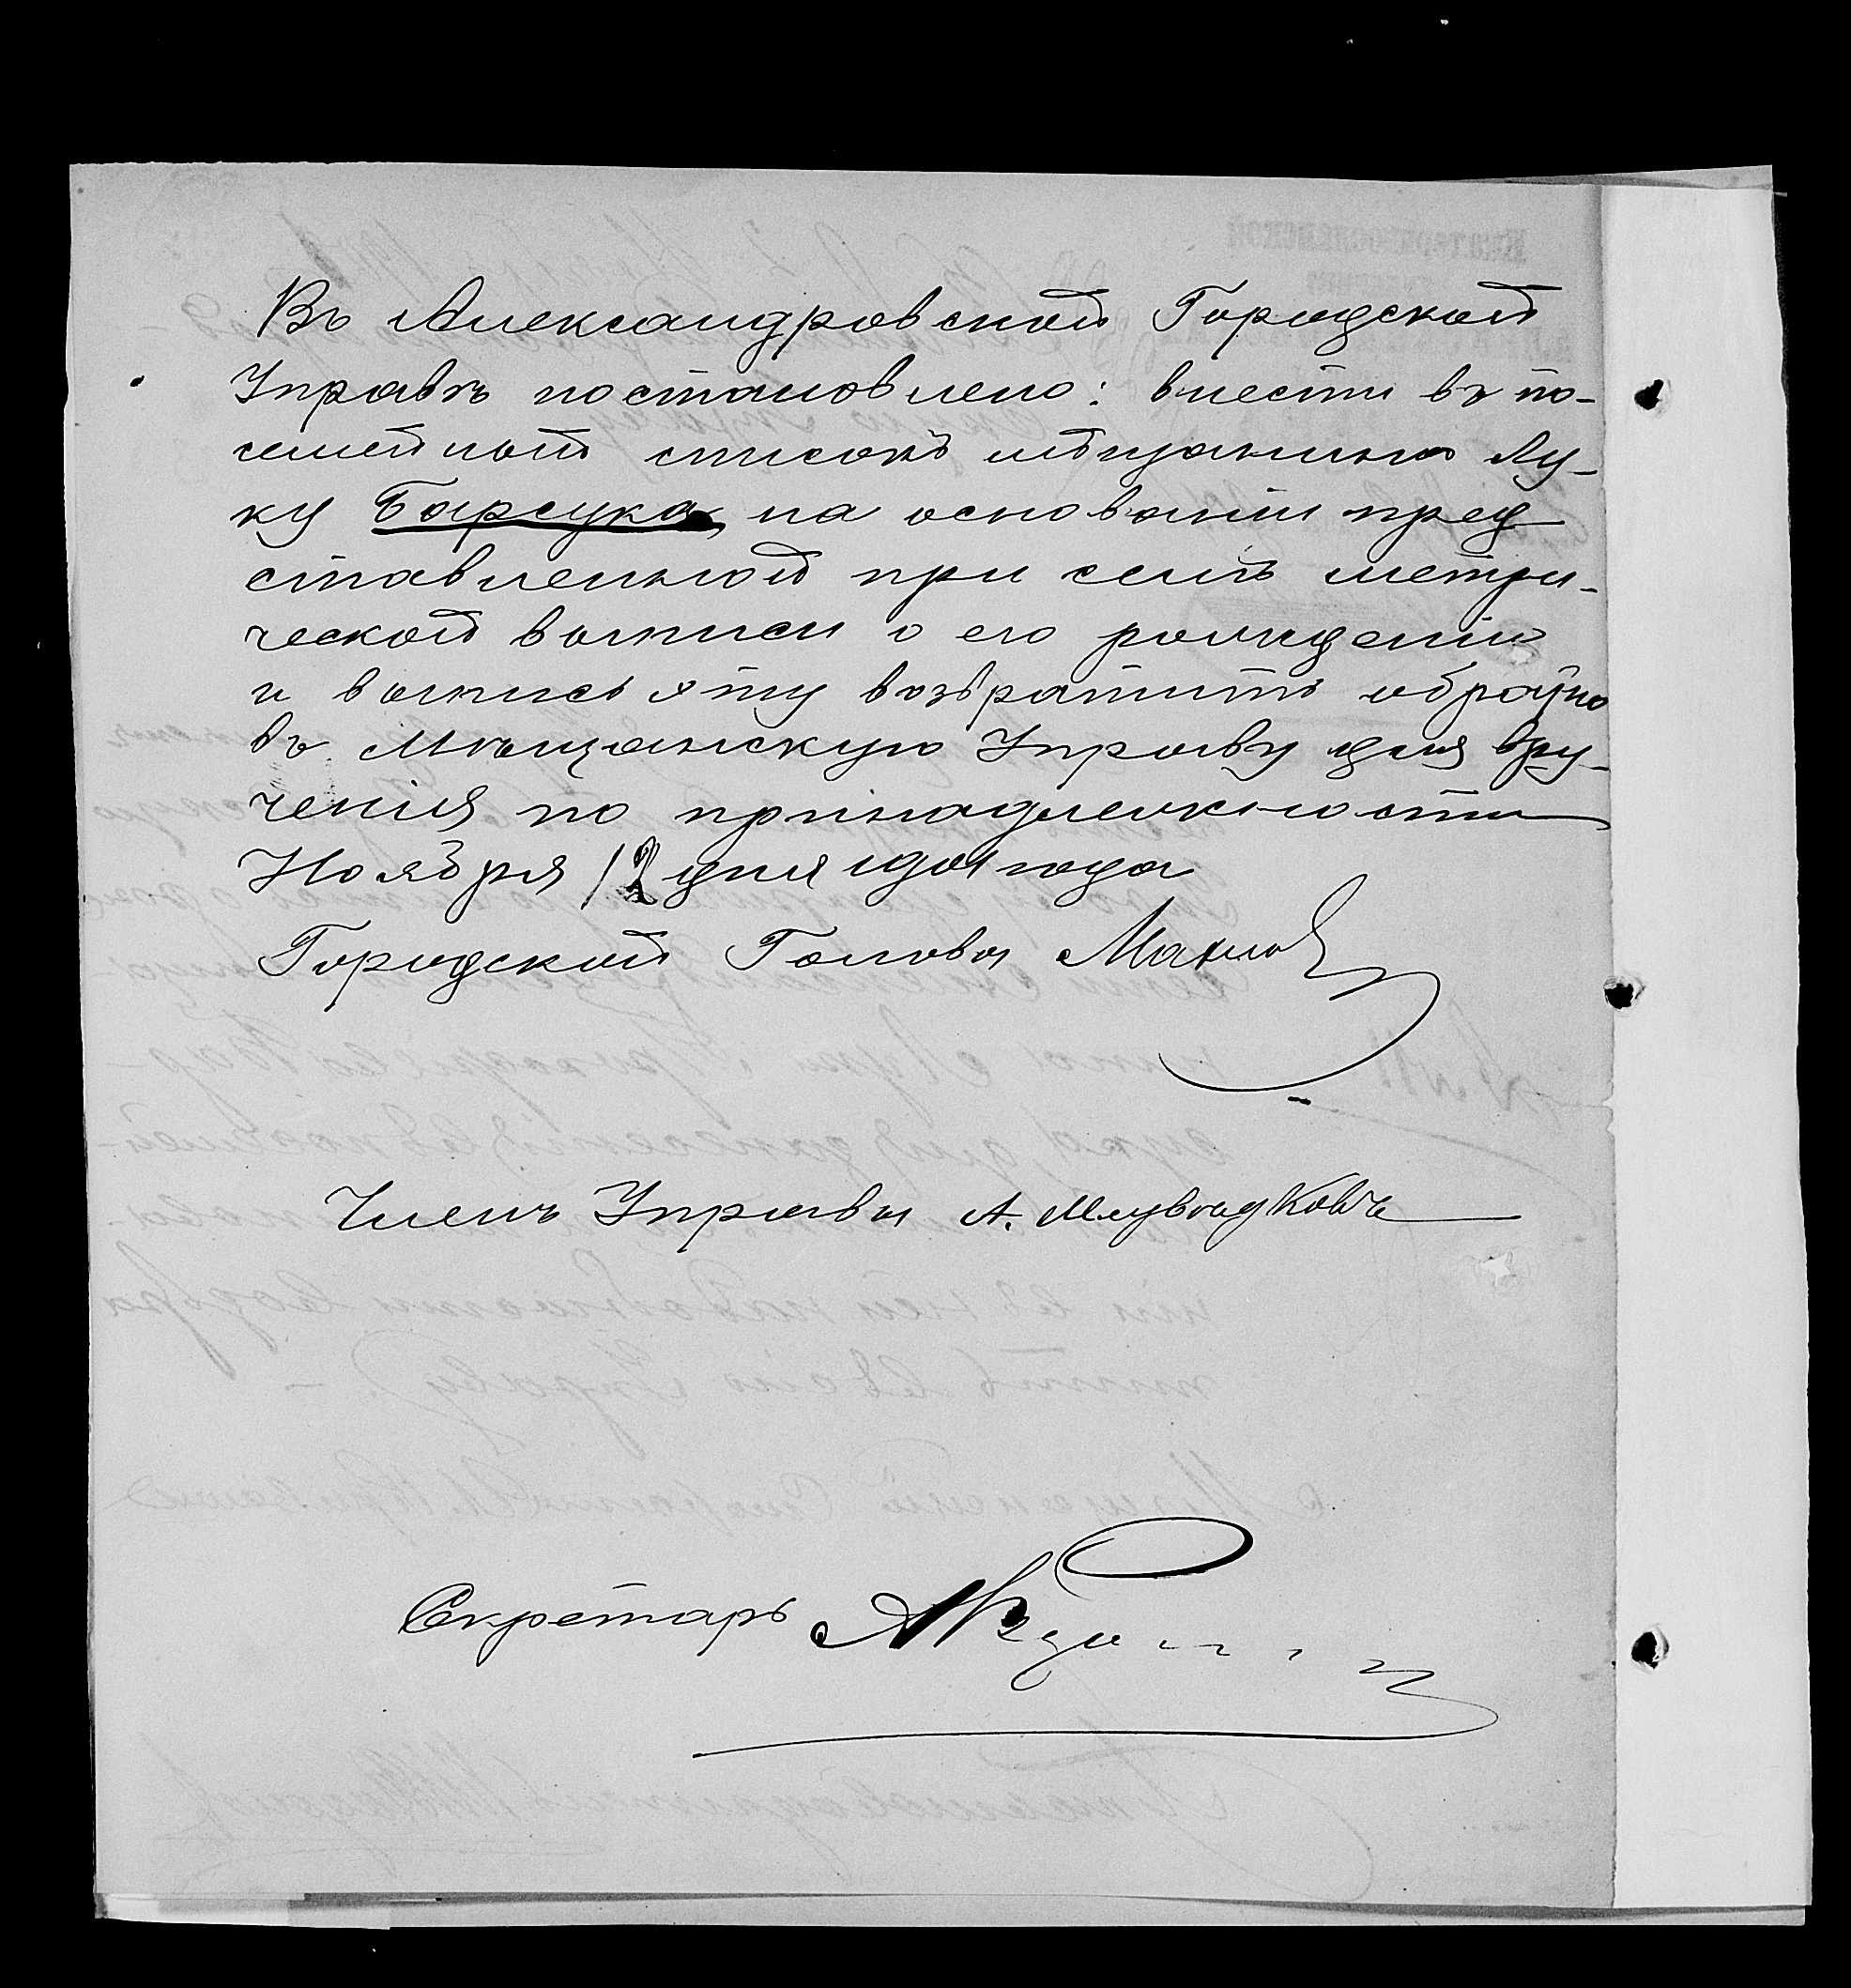 Въ Александровской Городской
Управѣ постановлено: внести въ по-
семейный списокъ мѣщанина Лу-
ку Барсука, на основаніи пред
ставленной при семъ метри-
ческой выписи о его рожденіи
и выпись эту возвратить обратно
въ Мѣщанскую Управу для вру-
ченія по принадлежности
Ноября 12 дня 1901 года
Городской Голова
Членъ Управы А.
Секретарь